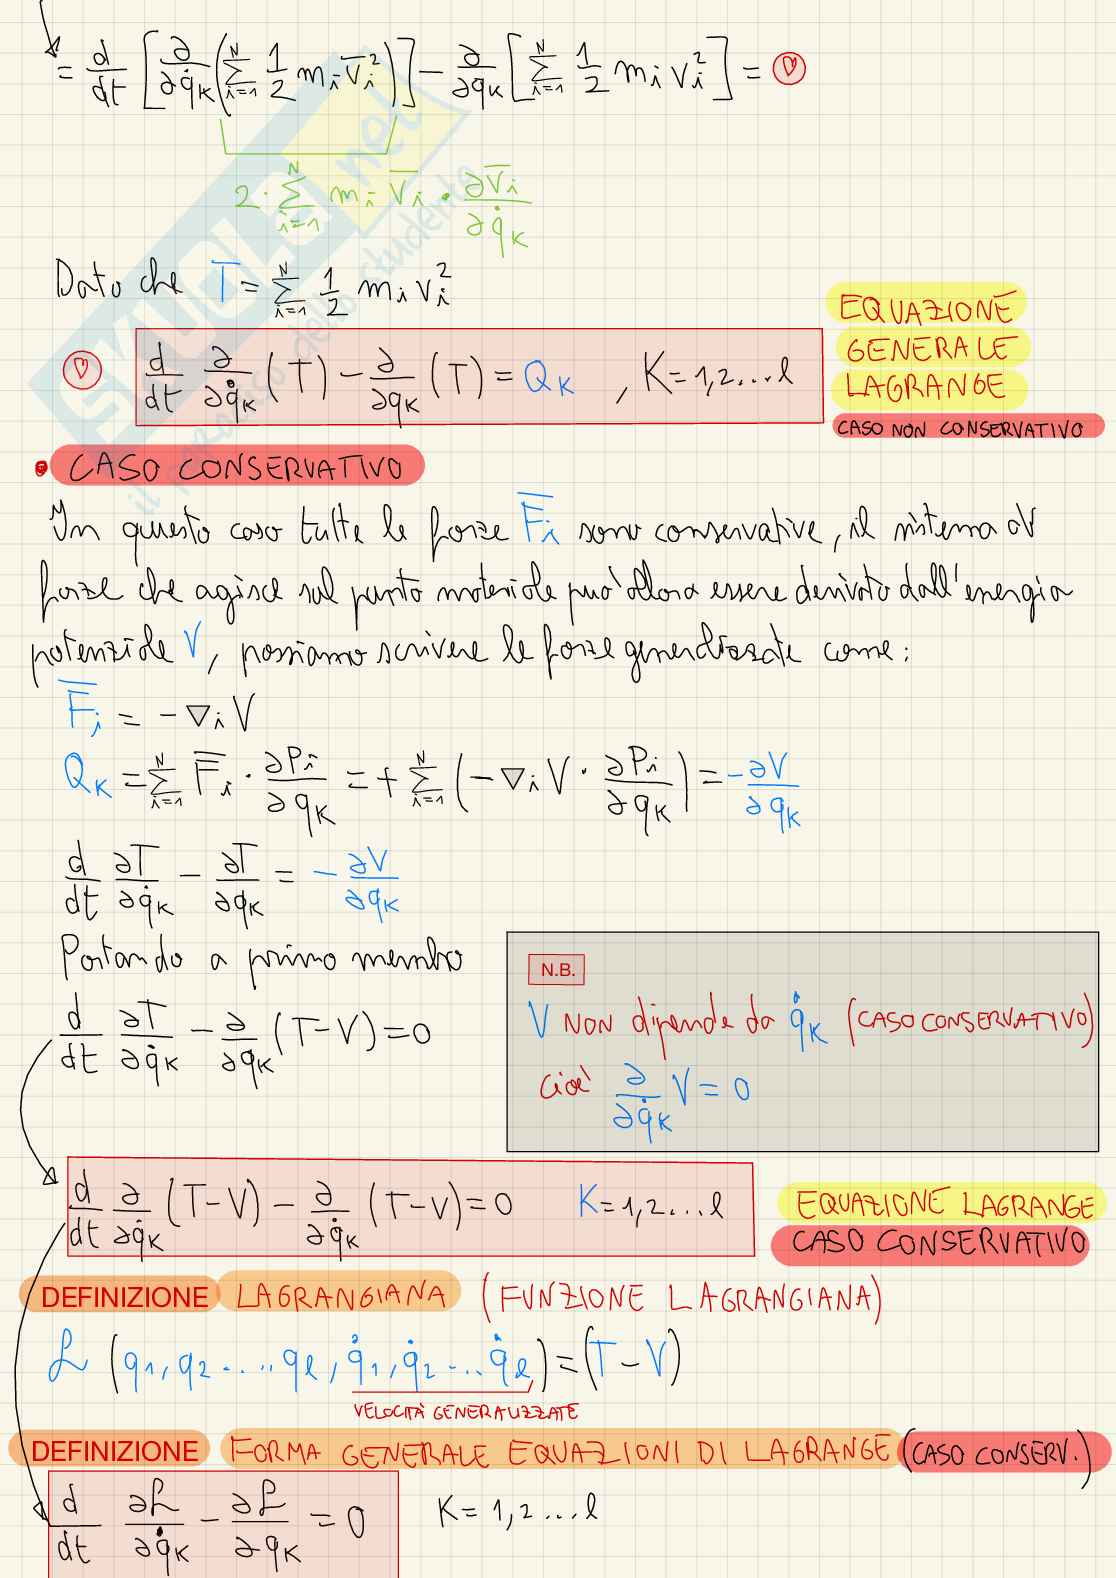 = d/dt [∂/∂q̇K (∑_{i=1}^{N} 1/2 mi v̄i²)] − ∂/∂qK [∑_{i=1}^{N} 1/2 mi vi²] = ♡
2·∑_{i=1}^{N} mi v̄i · ∂v̄i/∂q̇K
Dato che T = ∑_{i=1}^{N} 1/2 mi vi²
♡ d/dt ∂/∂q̇K (T) − ∂/∂qK (T) = QK , K=1,2...l
EQUAZIONE
GENERALE
LAGRANGE
CASO NON CONSERVATIVO
• CASO CONSERVATIVO
In questo caso tutte le forze F̄i sono conservative, il sistema di
forze che agisce sul punto materiale può allora essere derivato dall'energia
potenziale V, possiamo scrivere le forze generalizzate come:
F̄i = −∇i V
QK = ∑_{i=1}^{N} F̄i · ∂Pi/∂qK = + ∑_{i=1}^{N} (−∇i V · ∂Pi/∂qK) = −∂V/∂qK
d/dt ∂T/∂q̇K − ∂T/∂qK = −∂V/∂qK
Portando a primo membro
d/dt ∂T/∂q̇K − ∂/∂qK (T−V) = 0
N.B.
V NON dipende da q̇K (CASO CONSERVATIVO)
cioè ∂/∂q̇K V = 0
d/dt ∂/∂q̇K (T−V) − ∂/∂q̇K (T−V) = 0 K=1,2...l
EQUAZIONE LAGRANGE
CASO CONSERVATIVO
DEFINIZIONE LAGRANGIANA (FUNZIONE LAGRANGIANA)
ℒ (q1,q2....,ql, q̇1,q̇2...q̇l) = (T−V)
VELOCITÀ GENERALIZZATE
DEFINIZIONE FORMA GENERALE EQUAZIONI DI LAGRANGE (CASO CONSERV.)
d/dt ∂ℒ/∂q̇K − ∂ℒ/∂qK = 0 K=1,2...l
SKUOLA.net
il paradiso dello studente